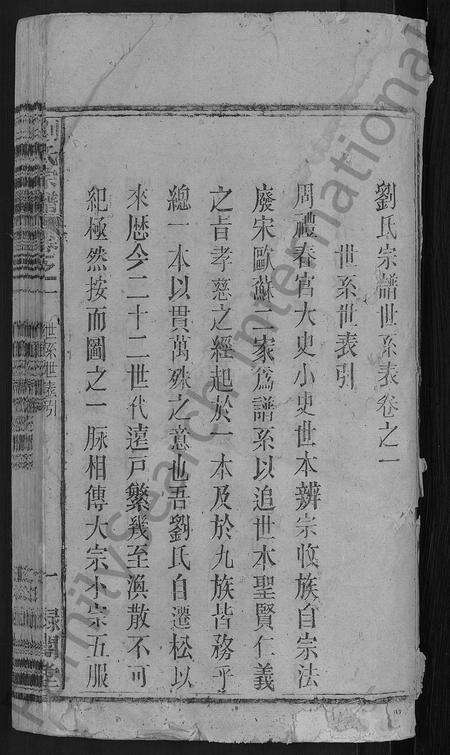 劉氏宗譜世系表卷之一
世系世表引
周禮春官大史小史世本辨宗收族自宗法
廢宋歐蘇二家為譜系以追世本聖賢仁義
之旨孝慈之經起於一本及於九族皆務乎
總一本以貫萬殊之意也吾劉氏自遷松以
來歷今二十二世代遠戸繁幾至渙散不可
紀極然按而圖之一脉相傳大宗小宗五服
氏宗譜卷之一
世系世表引
一
堂
FamilySearch International